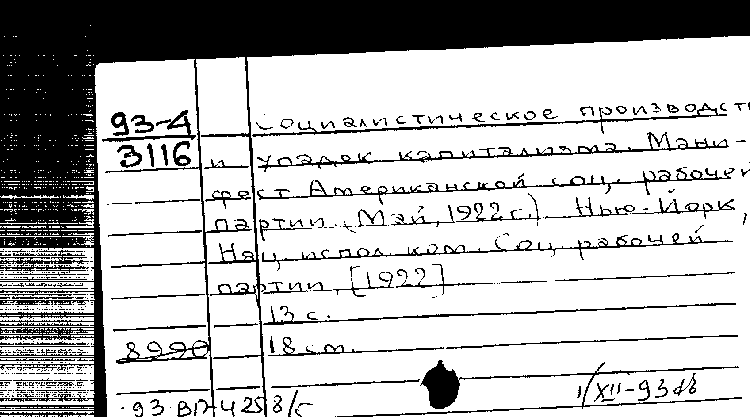 93-4 Социалистическое производст
3116 и упадок капитализма. Мани-
фест Американской соц. рабочей
партии. (Май, 1922 г.). Нью-Йорк,
Нац. испол. ком. Соц. рабочей
партии, [1922]
13 с.
8990 18 см.
93 ВП-4258/5 1/XII-93